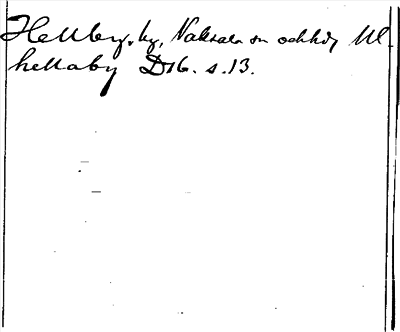 Hellby, by, Vaksala sn och hd, Ul.
hellaby D16. s. 13.